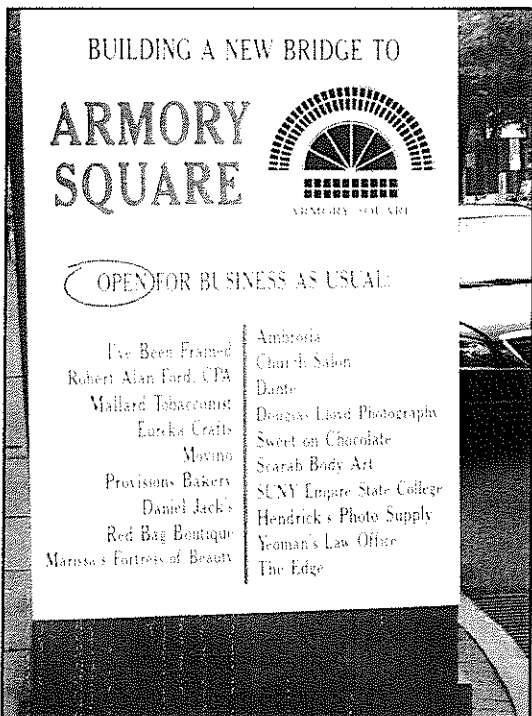 BUILDING A NEW BRIDGE TO
ARMORY
SQUARE
ARMORY SQUARE
OPEN FOR BUSINESS AS USUAL:
I've Been Framed
Robert Alan Ford, CPA
Mallard Tobacconist
Eureka Crafts
Movino
Provisions Bakery
Daniel Jack's
Red Bag Boutique
Marissa's Fortress of Beauty
Ambrosia
Church Salon
Dante
Douglas Lloyd Photography
Sweet on Chocolate
Scarab Body Art
SUNY Empire State College
Hendrick's Photo Supply
Yeoman's Law Office
The Edge